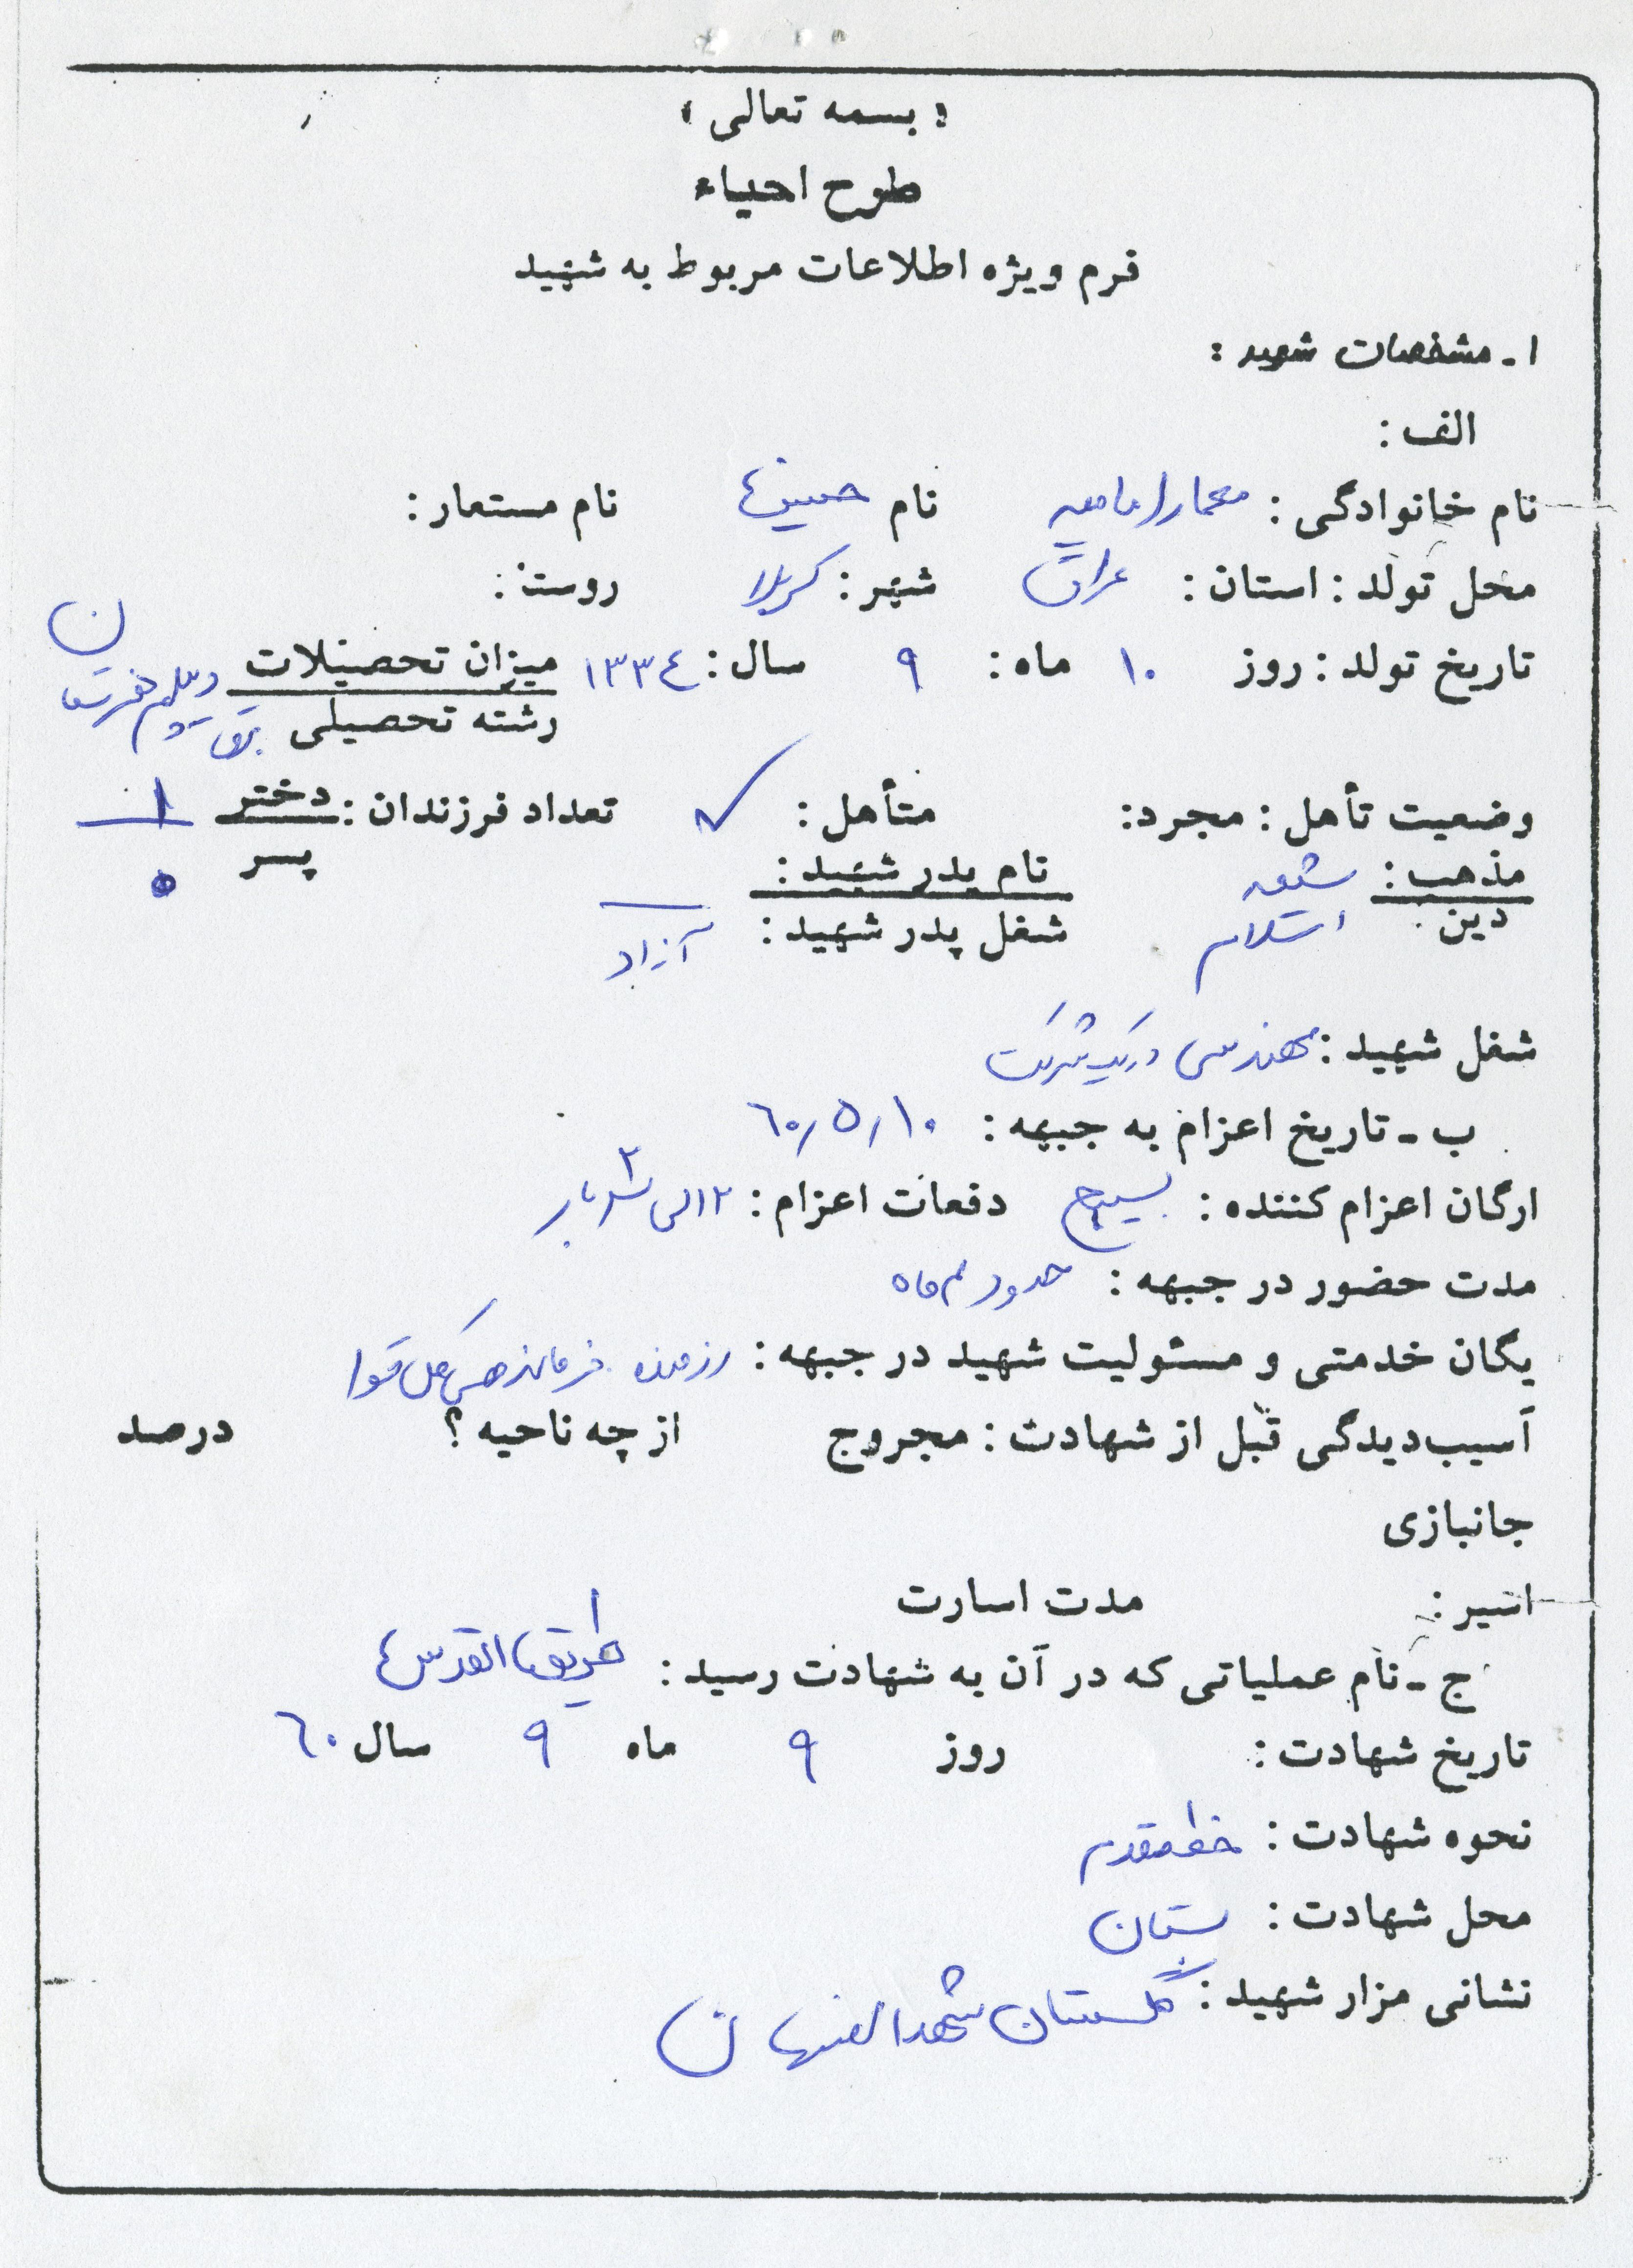 « بسمه تعالی »
طرح احیاء
فرم ویژه اطلاعات مربوط به شهید
۱ـ مشخصات شهید :
الف :
نام خانوادگی : معمار امامیه نام حسین نام مستعار :
محل تولد : استان : عراق شهر : کربلا روستا :
تاریخ تولد : روز ۱۰ ماه : ۹ سال : ۱۳۳٤ میزان تحصیلات دیپلم
رشته تحصیلی برق
وضعیت تأهل : مجرد : متأهل : ✓ تعداد فرزندان : دختر ۱
پسر ۰
مذهب : شیعه نام پدر شهید : —
دین : اسلام شغل پدر شهید : آزاد
شغل شهید : مهندس در یک شرکت
ب ـ تاریخ اعزام به جبهه : ۶۰/۵/۱۰
ارگان اعزام کننده : بسیج دفعات اعزام : ۲ الی ۳ بار
مدت حضور در جبهه : حدود ماه
یگان خدمتی و مسئولیت شهید در جبهه : رزمنده فرماندهی کل قوا
آسیب‌دیدگی قبل از شهادت : مجروح از چه ناحیه ؟ درصد
جانبازی
اسیر : مدت اسارت
ج ـ نام عملیاتی که در آن به شهادت رسید : طریق القدس
تاریخ شهادت : روز ۹ ماه ۹ سال ۶۰
نحوه شهادت : خط مقدم
محل شهادت : بستان
نشانی مزار شهید : گلستان شهدا اصفهان